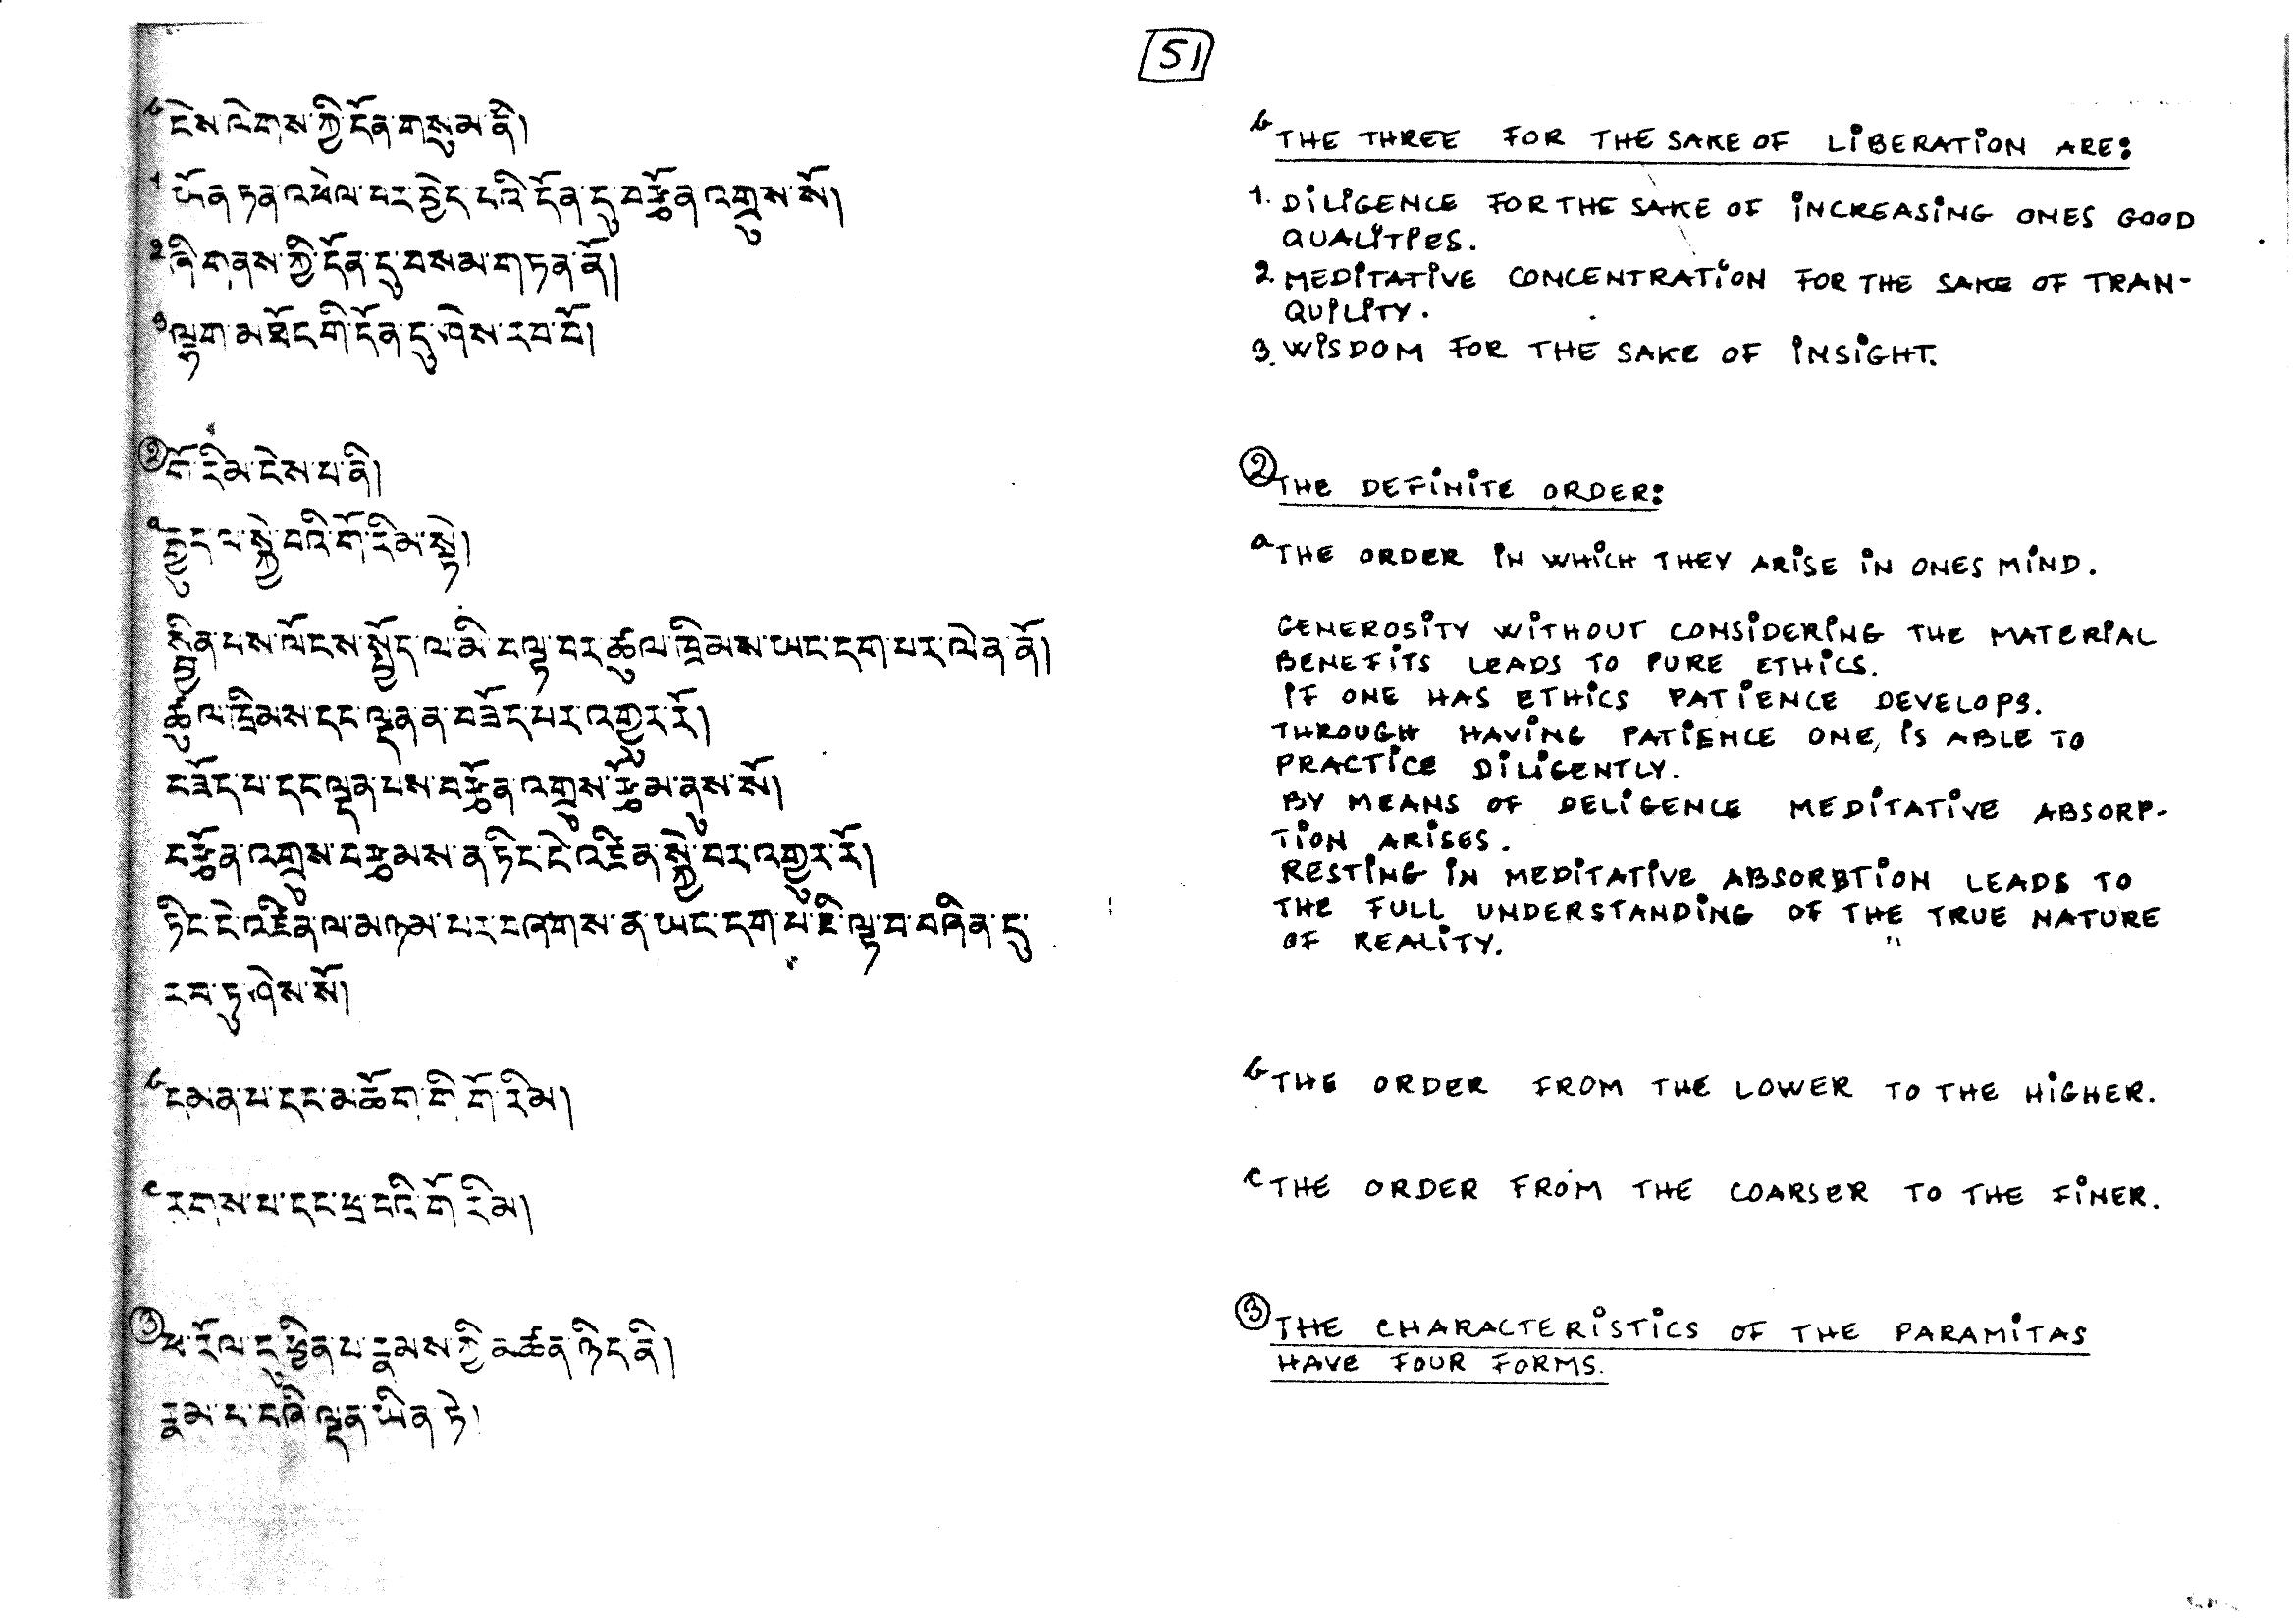 51
b ངེས་ལེགས་ཀྱི་དོན་གསུམ་ནི།
1 ཡོན་ཏན་འཕེལ་བར་བྱེད་པའི་དོན་དུ་བརྩོན་འགྲུས་སོ།
2 ཞི་གནས་ཀྱི་དོན་དུ་བསམ་གཏན་ནོ།
3 ལྷག་མཐོང་གི་དོན་དུ་ཤེས་རབ་བོ།
2 གོ་རིམ་ངེས་པ་ནི།
a རྒྱུད་ལ་སྐྱེ་བའི་གོ་རིམ་སྟེ།
སྦྱིན་པས་ལོངས་སྤྱོད་ལ་མི་བལྟ་བར་ཚུལ་ཁྲིམས་ཡང་དག་པར་ལེན་ནོ།
ཚུལ་ཁྲིམས་དང་ལྡན་ན་བཟོད་པར་འགྱུར་རོ།
བཟོད་པ་དང་ལྡན་པས་བརྩོན་འགྲུས་རྩོམ་ནུས་སོ།
བརྩོན་འགྲུས་བརྩམས་ན་ཏིང་ངེ་འཛིན་སྐྱེ་བར་འགྱུར་རོ།
ཏིང་ངེ་འཛིན་ལ་མཉམ་པར་བཞག་ས་ན་ཡང་དག་པ་ཇི་ལྟ་བ་བཞིན་དུ་
རབ་ཏུ་ཤེས་སོ།
b དམན་པ་དང་མཆོག་གི་གོ་རིམ།
c རགས་པ་དང་ཕྲ་བའི་གོ་རིམ།
3 ཕ་རོལ་དུ་ཕྱིན་པ་རྣམས་ཀྱི་མཚན་ཉིད་ནི།
རྣམ་པ་བཞི་ལྡན་ཡིན་ཏེ།
b THE THREE FOR THE SAKE OF LIBERATION ARE:
1. DILIGENCE FOR THE SAKE OF INCREASING ONES GOOD
QUALITIES.
2. MEDITATIVE CONCENTRATION FOR THE SAKE OF TRAN-
QUILITY.
3. WISDOM FOR THE SAKE OF INSIGHT.
2 THE DEFINITE ORDER:
a THE ORDER IN WHICH THEY ARISE IN ONES MIND.
GENEROSITY WITHOUT CONSIDERING THE MATERIAL
BENEFITS LEADS TO PURE ETHICS.
IF ONE HAS ETHICS PATIENCE DEVELOPS.
THROUGH HAVING PATIENCE ONE, IS ABLE TO
PRACTICE DILIGENTLY.
BY MEANS OF DELIGENCE MEDITATIVE ABSORP-
TION ARISES.
RESTING IN MEDITATIVE ABSORBTION LEADS TO
THE FULL UNDERSTANDING OF THE TRUE NATURE
OF REALITY.
b THE ORDER FROM THE LOWER TO THE HIGHER.
c THE ORDER FROM THE COARSER TO THE FINER.
3 THE CHARACTERISTICS OF THE PARAMITAS
HAVE FOUR FORMS.